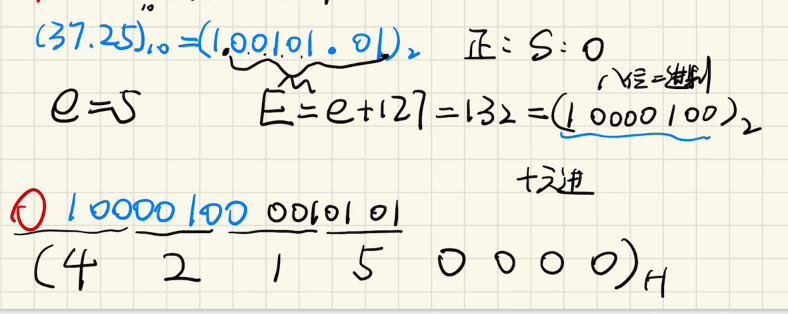 10
(37.25)10=(1.00101.01)2 正:S:0
八位二进制
e=5 E=e+127=132=(10000100)2
十六进
0 10000100 0010101
(4 2 1 5 0 0 0 0)H